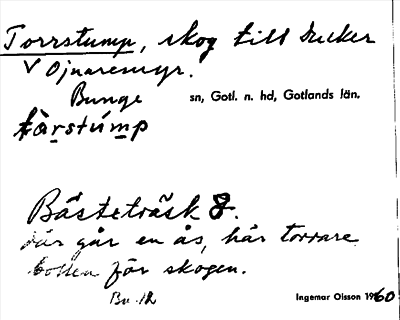 Torrstump, skog till Ducker
V Ojnaremyr.
Bunge sn, Gotl. n. hd, Gotlands län.
tàrstúmp
Bästeträsk 8.
där går en ås, här torrare
botten för skogen.
Ingemar Olsson 1960